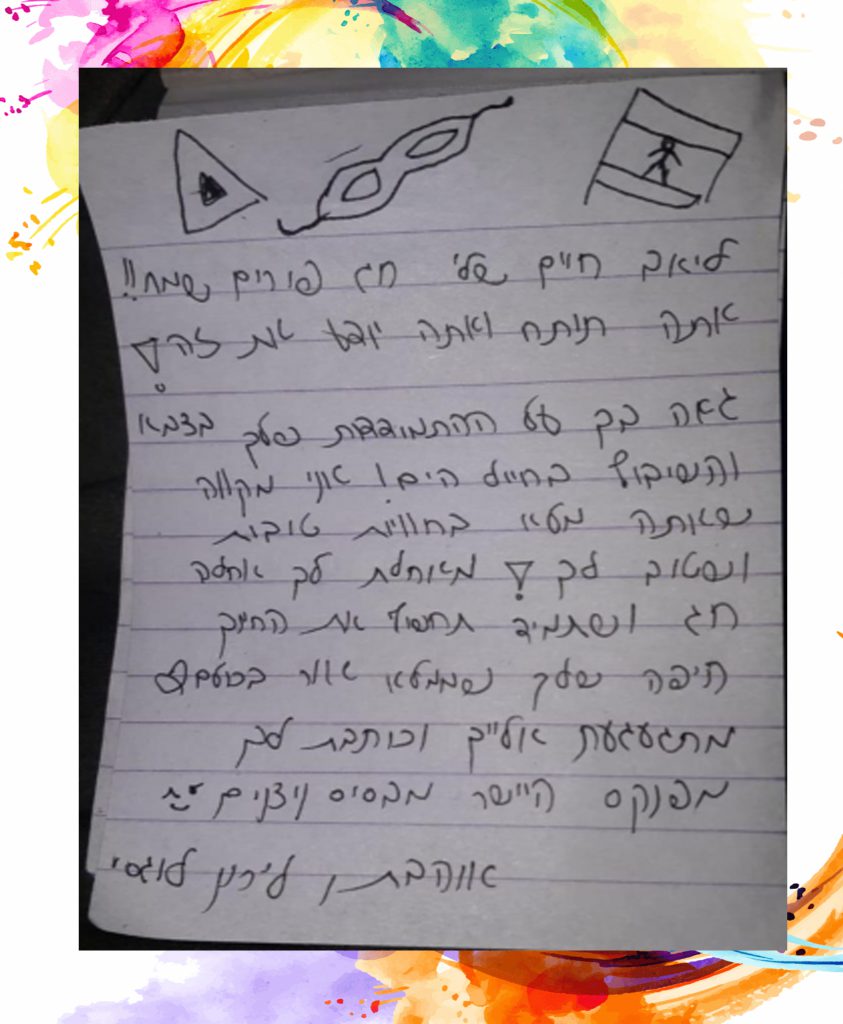 ליאב חיים שלי חג פורים שמח!!
אתה תותח ואתה יודע את זה
גאה בך על ההתמודדות שלך בצבא
והשיבוץ בחייל הים! אני מקווה
שאתה מלא בחוויות טובות
ושטוב לך מאחלת לך אחלה
חג ושתמיד תחשוף את החיוך
היפה שלך שממלא אור בכולם
מתגעגעת אלייך וכותבת לך
מפנקס היישר מבסיס ניצנים
אוהבת, לירון לוגסי